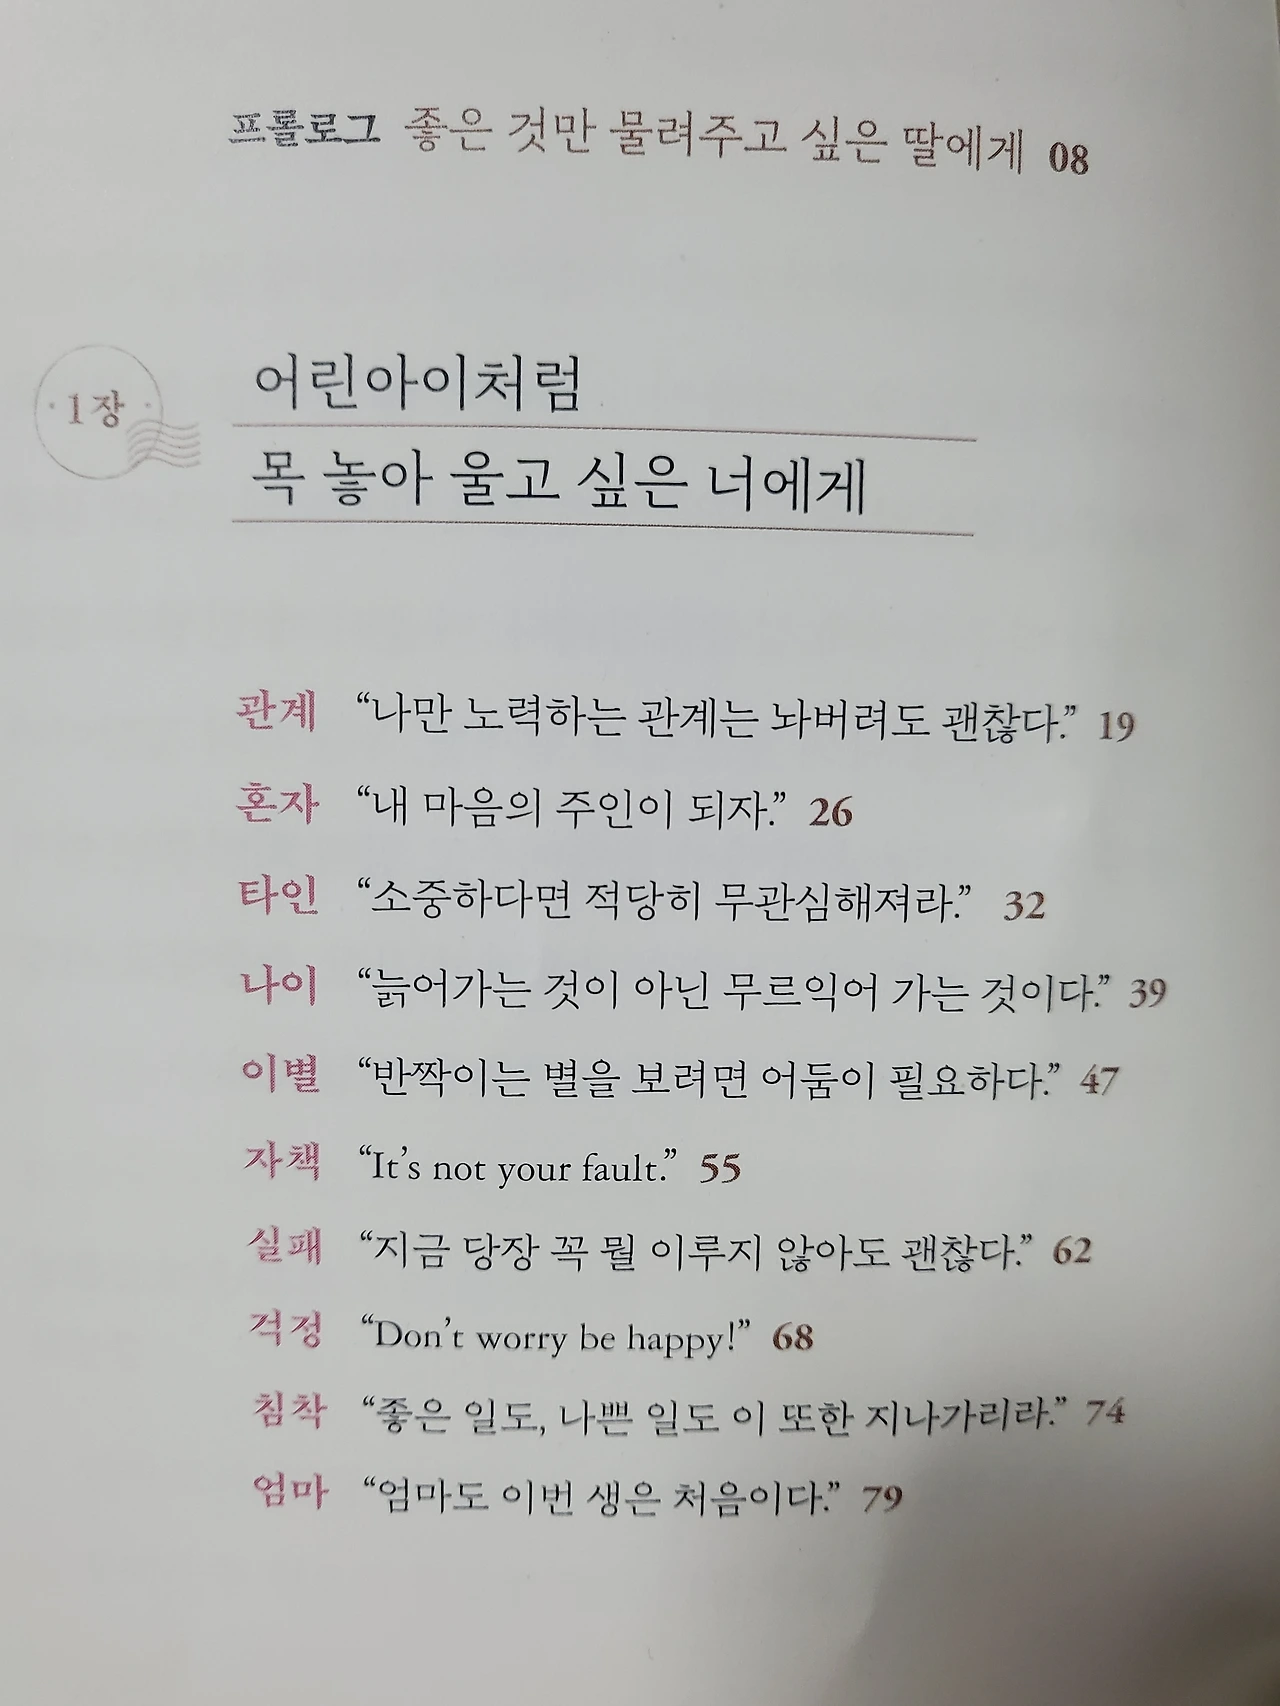 프롤로그 좋은 것만 물려주고 싶은 딸에게 08
1장
어린아이처럼
목 놓아 울고 싶은 너에게
관계 “나만 노력하는 관계는 놔버려도 괜찮다.” 19
혼자 “내 마음의 주인이 되자.” 26
타인 “소중하다면 적당히 무관심해져라.” 32
나이 “늙어가는 것이 아닌 무르익어 가는 것이다.” 39
이별 “반짝이는 별을 보려면 어둠이 필요하다.” 47
자책 “It’s not your fault.” 55
실패 “지금 당장 꼭 뭘 이루지 않아도 괜찮다.” 62
걱정 “Don’t worry be happy!” 68
침착 “좋은 일도, 나쁜 일도 이 또한 지나가리라.” 74
엄마 “엄마도 이번 생은 처음이다.” 79